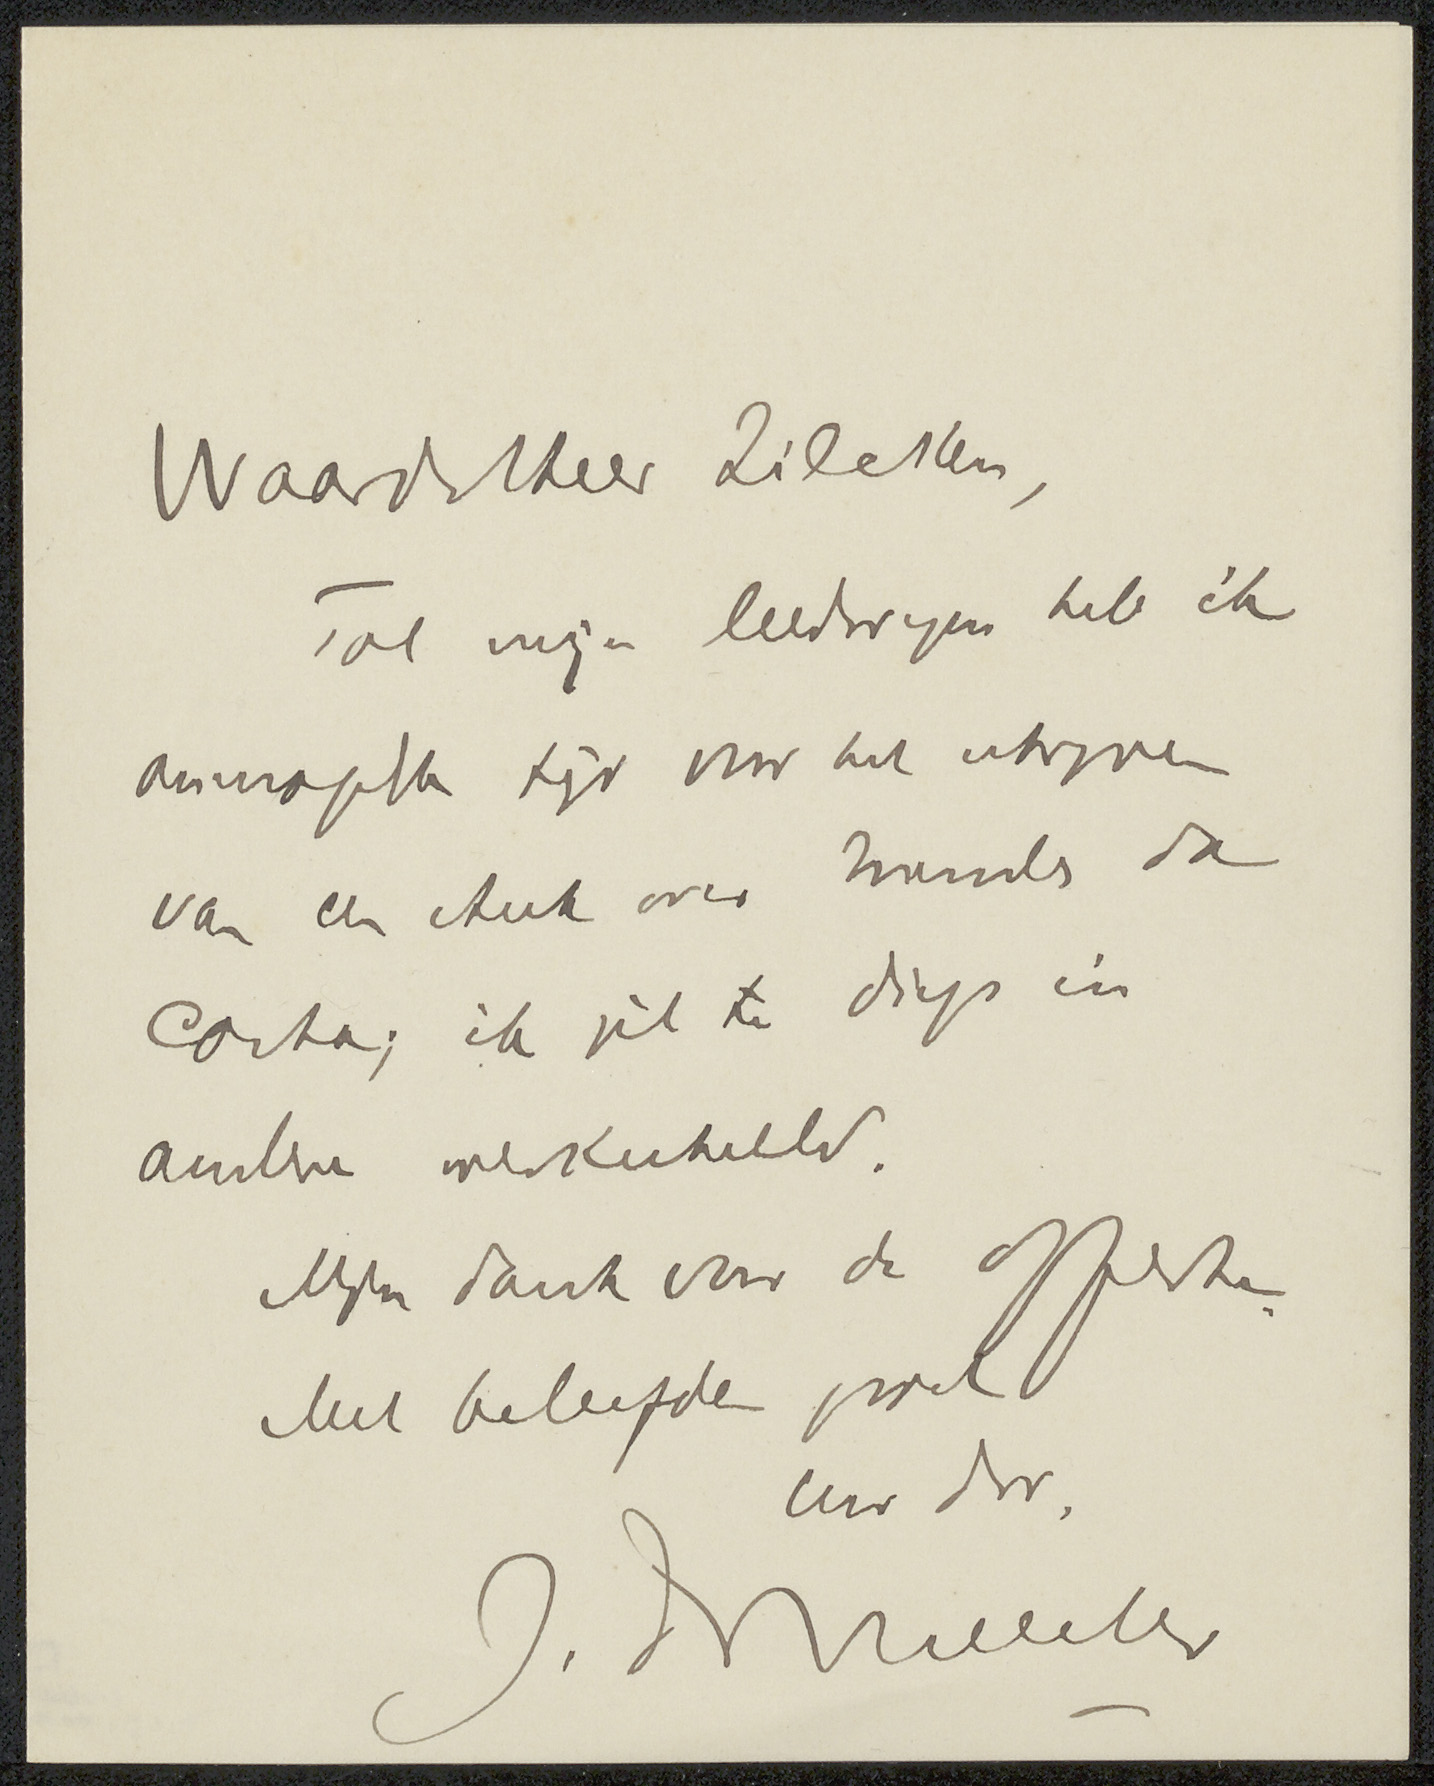 Waarde Heer Zilcken,
Tot mijn leedwezen heb ik
onmogelijk tijd voor het schrijven
van een stuk over Mendes da
Costa; ik zit te diep in
andere werkzaamheid.
Mijn dank voor de offerte.
Met beleefden groet
Uw dw.
J.